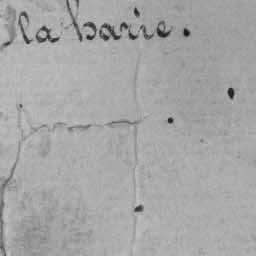 la barie.